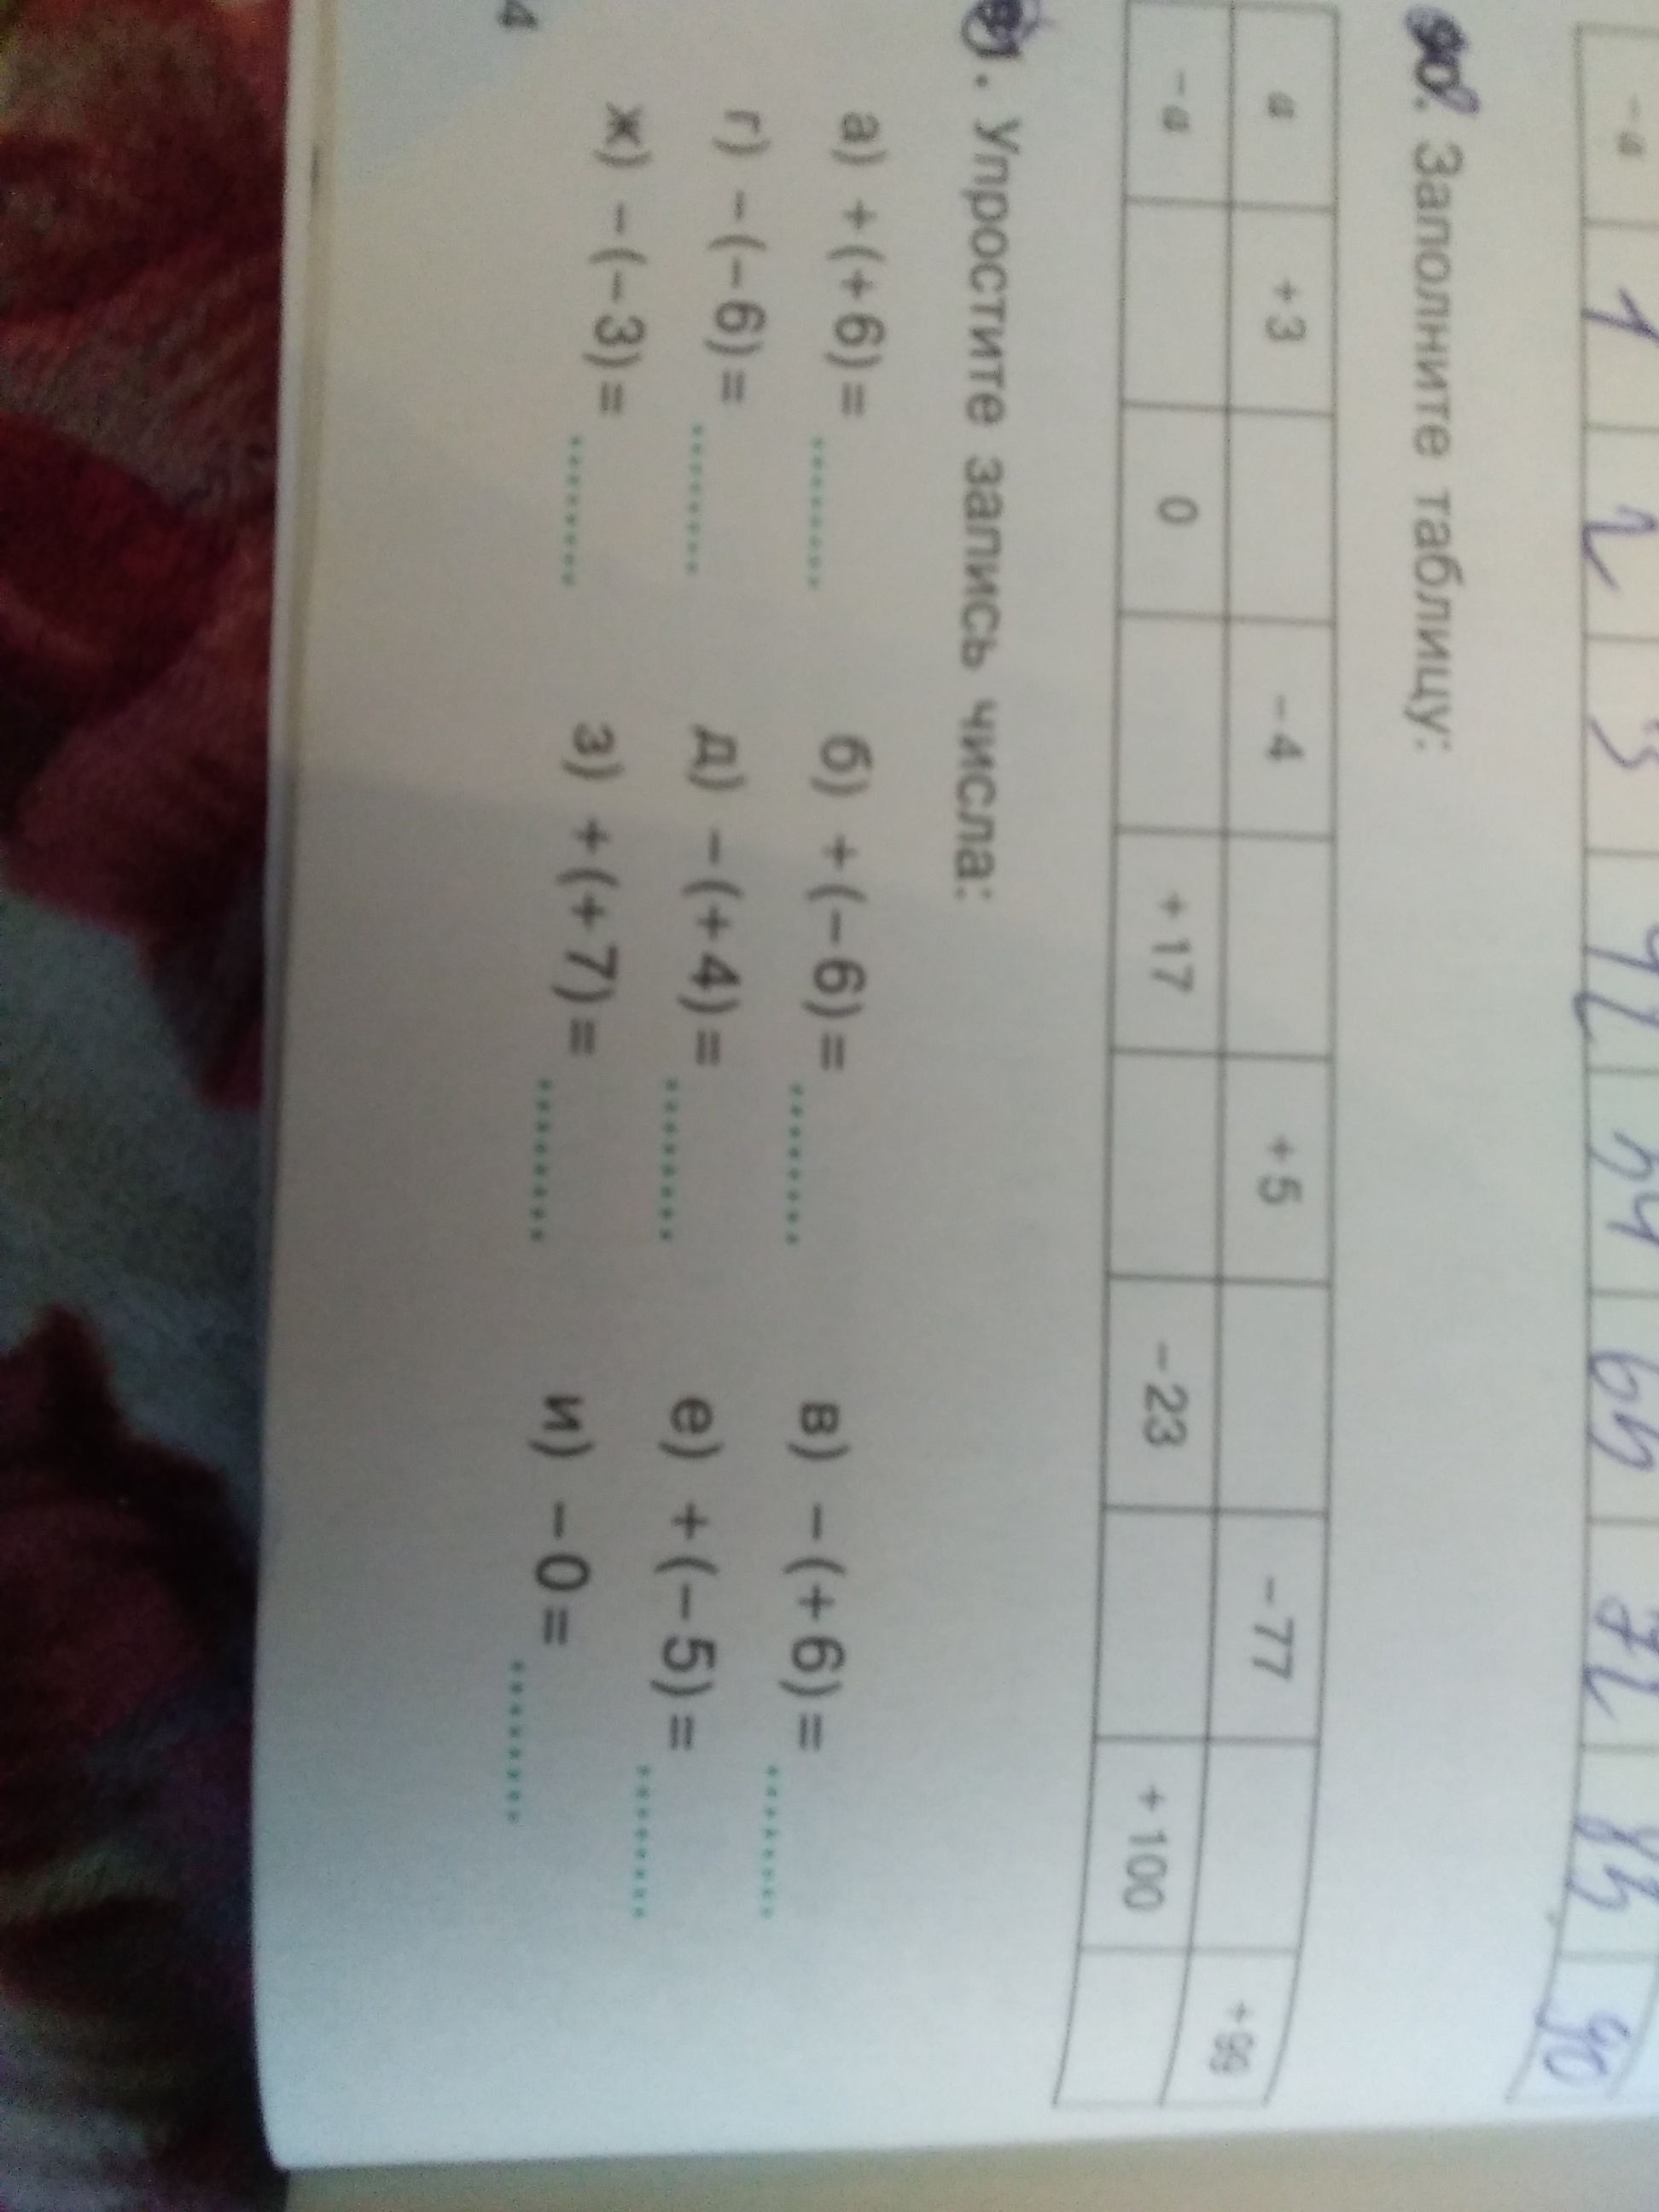 -a 1 2 3 42 54 65 72 83 90
. Заполните таблицу:
a +3 -4 +5 -77 +99
-a 0 +17 -23 +100
. Упростите запись числа:
а) +(+6)= ........ б) +(-6)= ........ в) -(+6)= ........
г) -(-6)= ........ д) -(+4)= ........ е) +(-5)= ........
ж) -(-3)= ........ з) +(+7)= ........ и) -0= ........
4